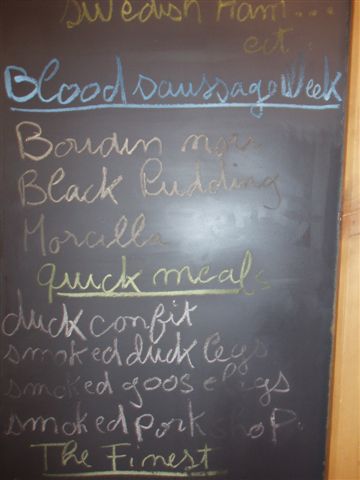 Swedish Ham...
ect.
Blood saussage Week
Boudin noir
Black Pudding
Morcilla
quick meals
duck confit
smoked duck legs
smoked goose legs
smoked pork shop.
The Finest